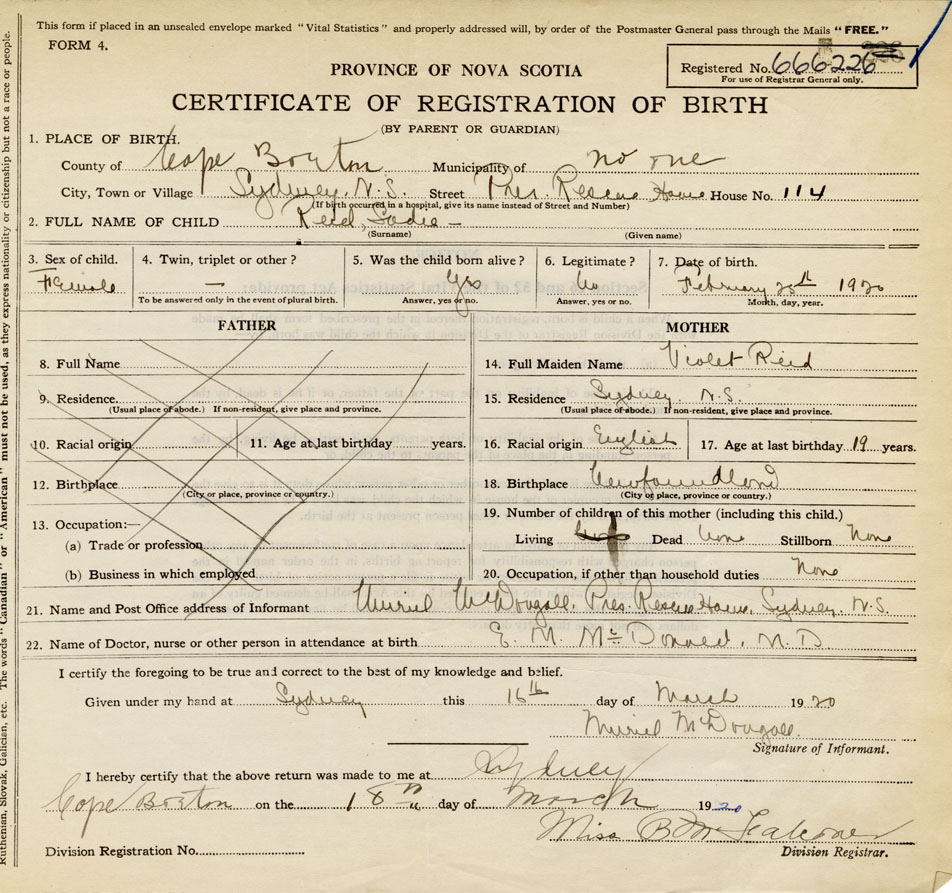 This form if placed in an unsealed envelope marked "Vital Statistics" and properly addressed will, by order of the Postmaster General pass through the Mails "FREE."
FORM 4.
Registered No. 666226
For use of Registrar General only.
PROVINCE OF NOVA SCOTIA
CERTIFICATE OF REGISTRATION OF BIRTH
(BY PARENT OR GUARDIAN)
1. PLACE OF BIRTH.
County of Cape Breton Municipality of no one
City, Town or Village Sydney, N.S. Street Pres. Rescue Home House No. 114
(If birth occurred in a hospital, give its name instead of Street and Number)
2. FULL NAME OF CHILD Reid, Sadie —
(Surname) (Given name)
3. Sex of child. 4. Twin, triplet or other? 5. Was the child born alive? 6. Legitimate? 7. Date of birth.
Female — Yes No February 25th 1920
To be answered only in the event of plural birth. Answer, yes or no. Answer, yes or no. Month, day, year.
FATHER MOTHER
8. Full Name 14. Full Maiden Name Violet Reid
9. Residence 15. Residence Sydney N.S.
(Usual place of abode.) If non-resident, give place and province. (Usual place of abode.) If non-resident, give place and province.
10. Racial origin 11. Age at last birthday years. 16. Racial origin English 17. Age at last birthday 19 years.
12. Birthplace 18. Birthplace Newfoundland
(City or place, province or country.) (City or place, province or country.)
13. Occupation:— 19. Number of children of this mother (including this child.)
(a) Trade or profession Living Dead None Stillborn None
(b) Business in which employed 20. Occupation, if other than household duties None
21. Name and Post Office address of Informant Muriel McDougall, Pres. Rescue Home, Sydney, N.S.
22. Name of Doctor, nurse or other person in attendance at birth E. M. McDonald, M.D.
I certify the foregoing to be true and correct to the best of my knowledge and belief.
Given under my hand at Sydney this 16th day of March 1920
Muriel McDougall
Signature of Informant.
I hereby certify that the above return was made to me at Sydney
Cape Breton on the 18th day of March 1920
Miss B
Division Registrar.
Division Registration No.
Ruthenian, Slovak, Galician, etc. The words "Canadian" or "American" must not be used, as they express nationality or citizenship but not a race or people.